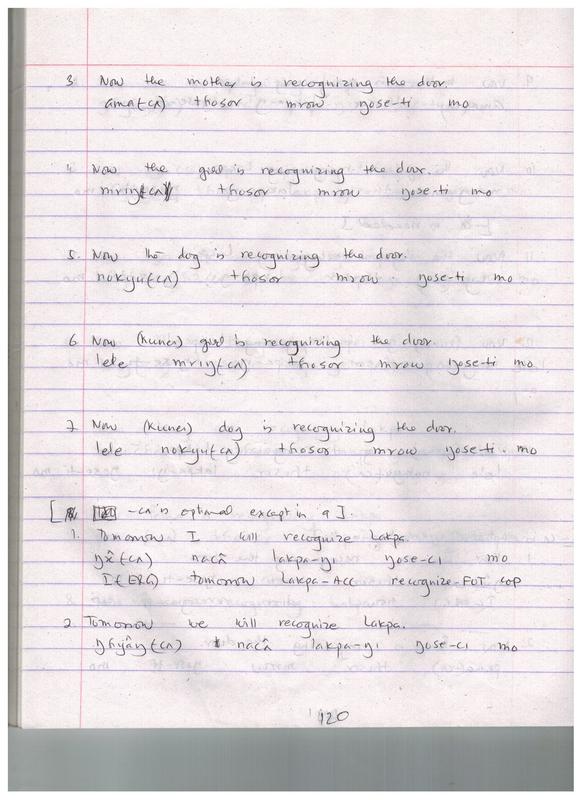 3. Now the mother is recognizing the door.
ama(cʌ) thosor mrow ŋose-ti mo
4. Now the girl is recognizing the door.
mriŋ(cʌ) thosor mrow ŋose-ti mo
5. Now the dog is recognizing the door.
nokyu(cʌ) thosor mrow ŋose-ti mo
6. Now (Kunes) girl is recognizing the door
lele mriŋ(cʌ) thosor mrow ŋose-ti mo
7. Now (Kunes) dog is recognizing the door.
lele nokyu(cʌ) thosor mrow ŋose-ti mo
[ -cʌ is optional except in 9 ].
1. Tomorrow I will recognize Lakpa.
ŋʌ̂(cʌ) nacâ lakpa-ŋı ŋose-cı mo
I(ERG) tomorrow Lakpa-ACC recognize-FUT COP
2. Tomorrow we will recognize Lakpa.
ŋhyâŋ(cʌ) nacâ lakpa-ŋı ŋose-cı mo
120